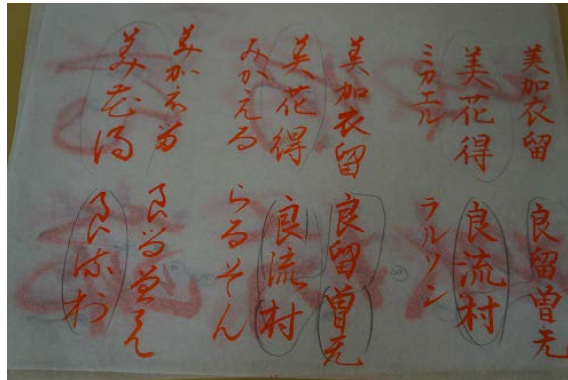 美加衣留
美花得
ミカエル
美加衣留
美花得
みかえる
美花得
良留曽无
良流村
ラルソン
良留曽无
良流村
らるそん
良留曽无
良流村